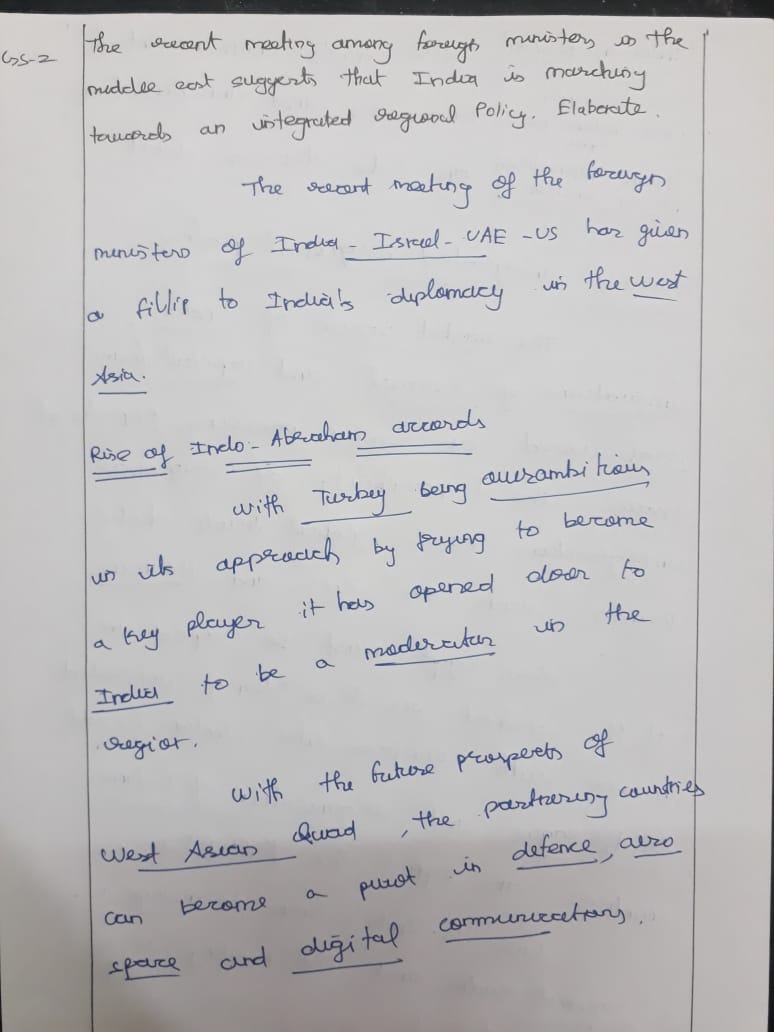 GS-2
The recent meeting among foreign ministers in the
middle east suggests that India is marching
towards an integrated regional Policy. Elaborate.
The recent meeting of the foreign
ministers of India - Israel - UAE - US has given
a fillip to India's diplomacy in the west
Asia.
Rise of Indo - Abraham accords
with Turkey being overambitious
in its approach by trying to become
a key player it has opened door to
India to be a moderator in the
region.
With the future prospects of
West Asian Quad, the partnering countries
can become a pivot in defence, aero
space and digital communications.